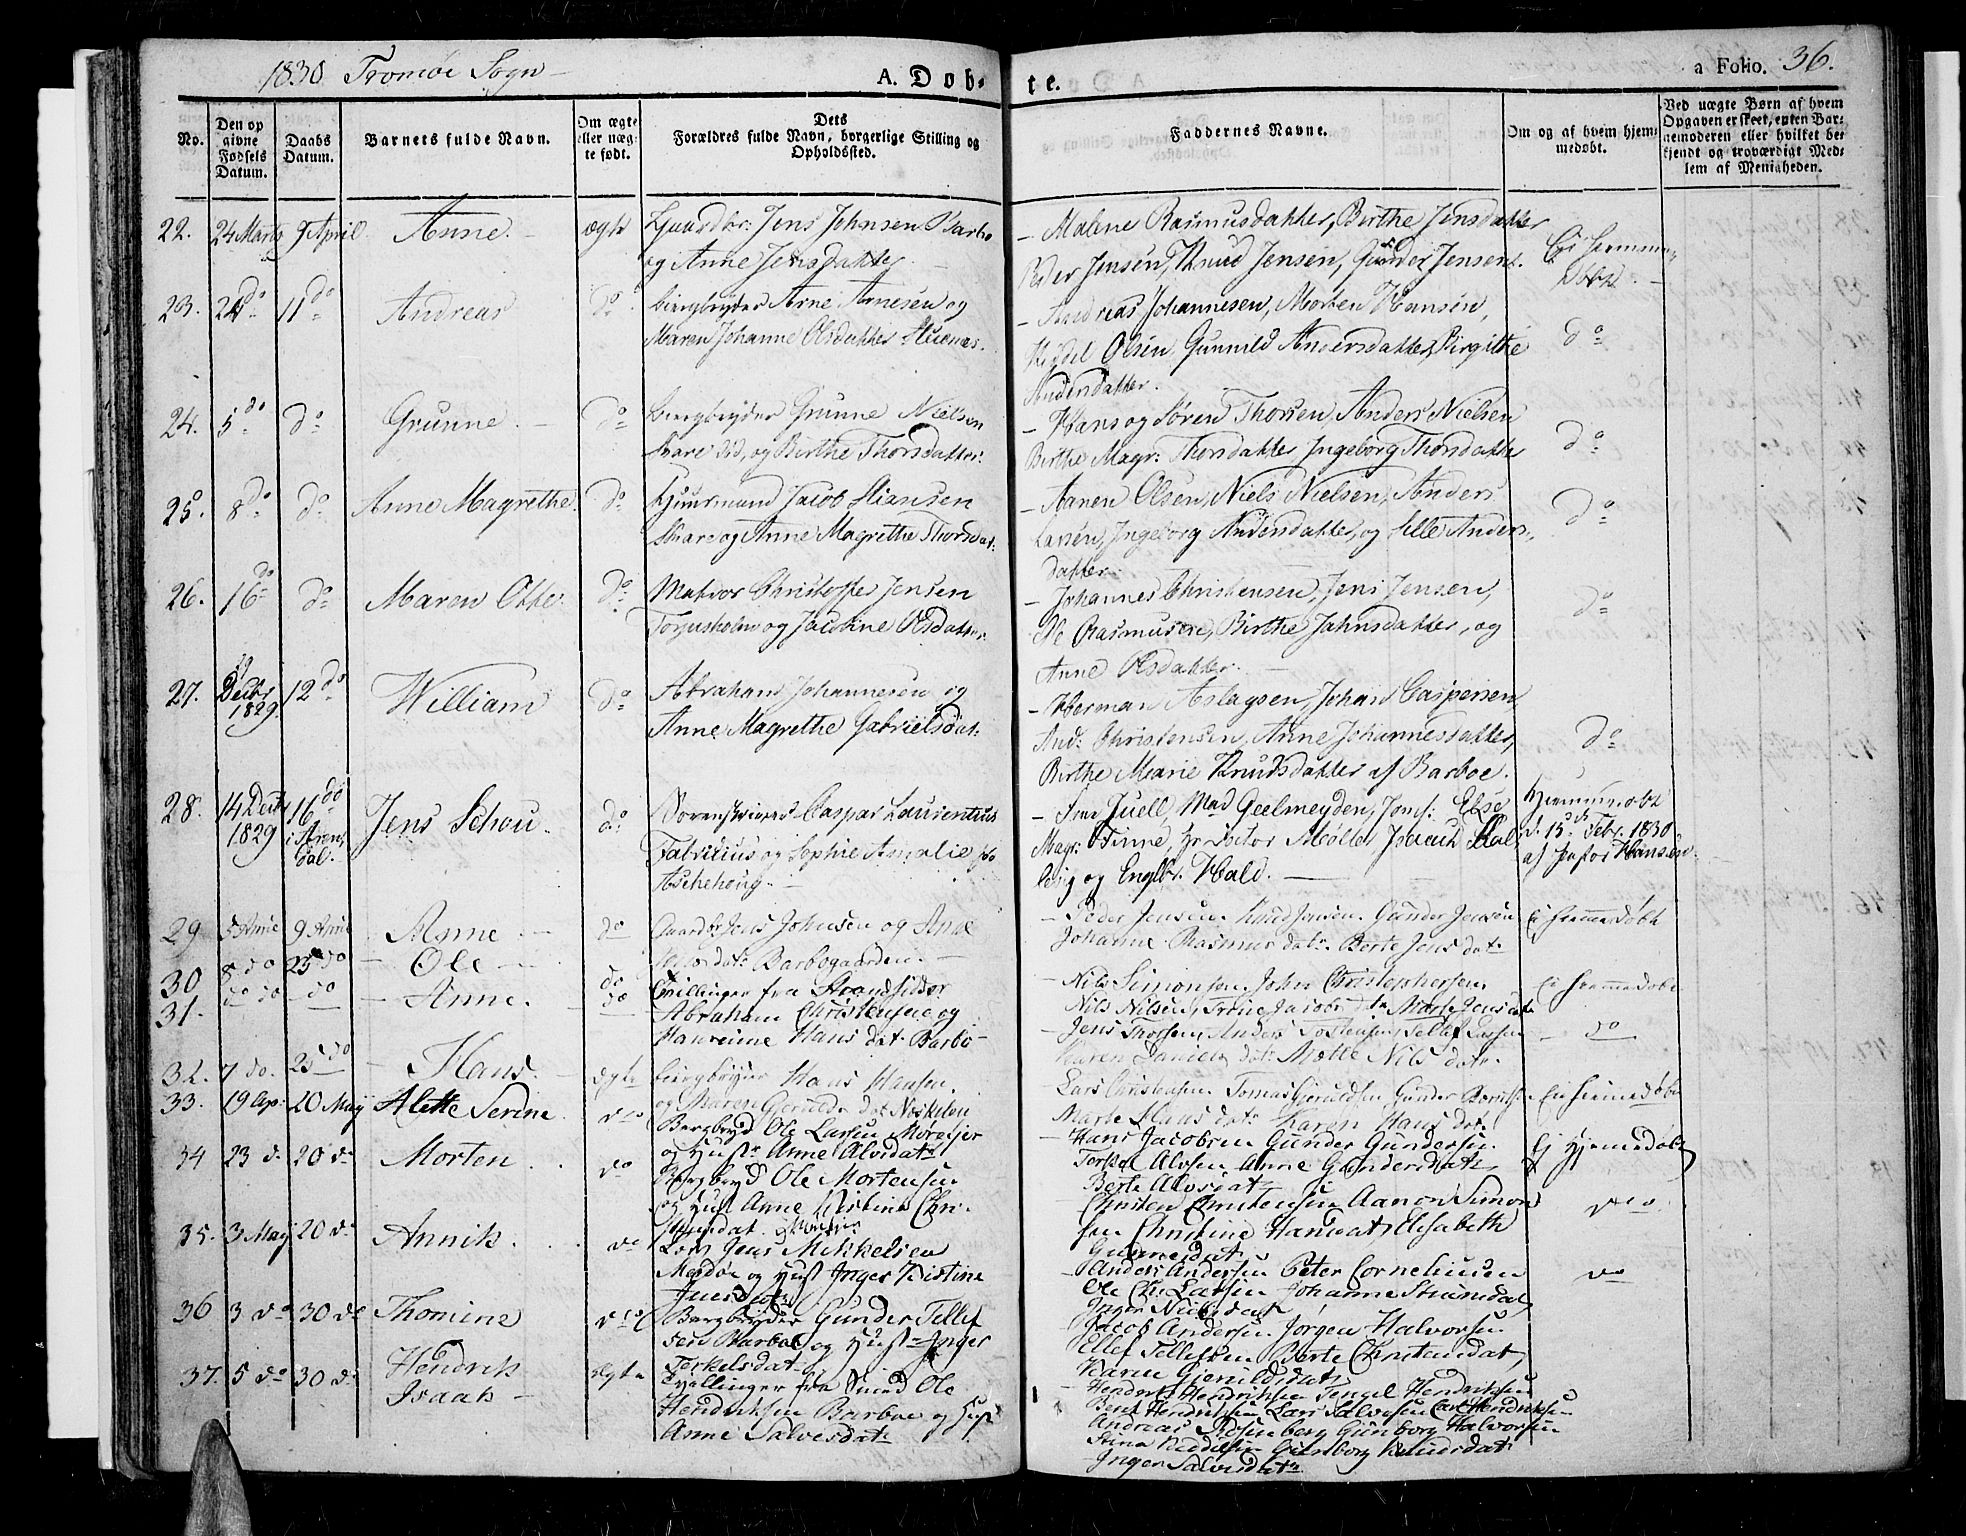 1830 Tromöe Sogn
A. Dob-
te.
a Folio. 36.
No.
Den op
givne
Fødsels
Datum.
Daabs
Datum.
Barnets fulde Navn.
Om ægte
eller uæg-
te født.
Dets
Forældres fulde Navn, borgerlige Stilling og
Opholdssted.
Faddernes Navne.
Om og af hvem hjem-
medøbt.
Ved uægte Børn af hvem
Opgaven er skeet, enten Bar-
nemoderen eller hvilket be-
kjendt og troværdigt Med-
lem af Menigheden.
22. 24 Marts 9 April Anne. ægte Gaardbr: Jens Johnsen Barbo
og Anne Jensdatter
– Malene Rasmusdatter, Birthe Jensdatter
Peder Jensen, Knud Jensen, Gunder Jensen.
Ei hjemme-
døbt.
23. 24 do 11 do Andreas do Bergbryder Arne Arnesen og
Maren Johanne Olsdatter
– Andreas Johannesen, Morten Hansen,
Kjddel Olsen, Gunnild Andersdatter, Birgithe
Andersdatter.
do
24. 5 do do Grunne. do Bergbryder Grunne Nielsen
og Birthe Thorsdatter.
– Hans og Søren Thorsen, Anders Nielsen
Birthe Magr: Thorsdatter Ingeborg Thorsdatter
do
25. 8 do do Anne Magrethe. do Jacob Stiansen
Skare og Anne Magrethe Thorsdat:
– Aanen Olsen, Niels Nielsen, Anders
Larsen, Ingeborg Andersdatter, og Elle Anders-
datter
do
26. 16 do do Maren Otte. do Matros Christoffer Jensen
Torjusholm og Jacobine Olsdatter.
– Johannes Christensen, Jens Jensen,
Ole Rasmusen, Birthe Jahnsdatter, og
Anne Olsdatter.
do
27. 29 Decbr 1829. 12 do William do Abraham Johannesen og
Anne Magrethe Gabrielsdat:
– Herman Aslagsen, Johan Caspersen
And: Christensen, Anne Johannesdatter,
Birthe Marie Knudsdatter af Barboe.
do
28. 14 Decbr 1829 16 do i Aren-
dal. Jens Schou. do Sorenskriver Caspar Laurentius
Fabritius og Sophie Amalie
Aschehoug.
– Juell, Mad Geelmeyden, Jomf: Else
Magr: Finne, Hr Doctor Møller,
og Englbr. Hald.
Hjemmedøbt
d. 15 Febr. 1830
af Pastor Hansen
29 5 April 9 April Anne do Gaardbr Jens Johnsen og Anne
Jensdatr Barbogaarden.
– Peder Jensen. Knud Jensen. Gunder Jensen
Johanne Rasmusdatr Berte Jensdatr
Ei hjemmedøbt
30 8 do 25 do Ole do Tvillinger fra
31. do do do Anne. do Abraham Christensen og
Hansdat. Barbo
– Nils Simonsen John Christophersen
Nils Nilsen, Trone Jacobsdatr Marte Jensdatr
– Jens Thorsen, Anders Tostensen, Tellef Larsen
Karen Danielsdatr Mætte Nilsdatr.
Ei hjemmedøbt
do
32. 7 do. 25 do Hans. ægte Bergbryder Hans Hansen
og Maren Gerulds dat
Lars Christensen Tomas Gieruldsen Gunder
Marte Hansdatr Karen Hansdatr.
Ei hjemmedøbt
33. 19 Ap: 20 May Alette Serine do Bergbryd Ole Larsen
og Hustr Anne Alvsdatr
– Hans Jacobsen Gunder Gundersen
Torkel Alvsen Anne Gundersdatr
Berte Alvsdatr
Ej Hjemmedøbt
34 23 d. 20 do Morten. do Bergbryd Ole Mortensen
og Hust Anne Kistine Chri-
stensdat.
Christen Christensen Aanon Simon
sen Christine Hansdat, Elisabeth
Gunnersdat
do
35. 3 May 20 do Annik. do Lods Jens Mikkelsen
Merdøe og Hust Inger Kistine
– Anders Andersen Peter Corneliusen
Ole Chr. Larsen Johanne
Inger Nielsdat
do
36 3 do 30 do Thomine do Bergbryder Gunder Tellef
sen Barboe og Hustr Inger
Torkelsdat
Jacob Andersen. Jørgen Halvorsen
Ellef Tellefsen Berte Christensdat,
Karen Gjeruldsdatr
37. 5 do 30 do Hendrik
Isaak ægte Tvillinger fra Smed Ole
Hendriksen Barboe og Hust
Anne Salvesdatr
– Hendrik Hendriksen Tengel Hendriksen
Bent Hendriksen Lars Salvesen Carl Hendriksen
Andreas Rosenberg Gunborg Halvorsen
Gunborg Knudsdat
– Inger Salvesdatr